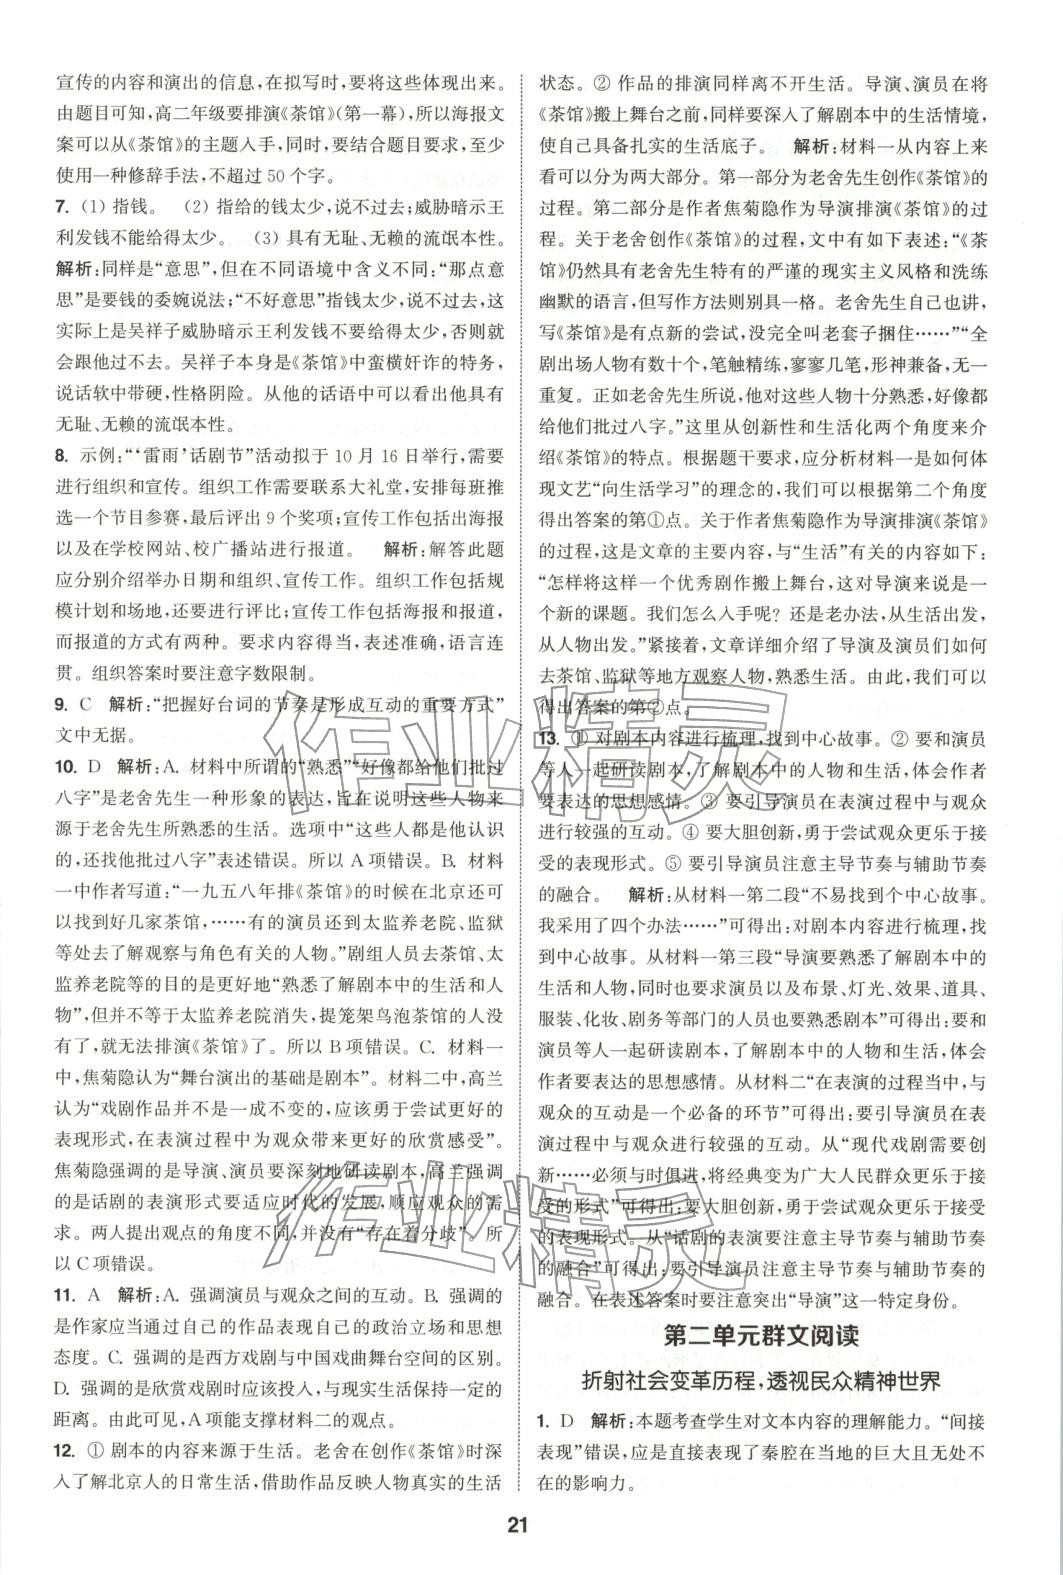 宣传的内容和演出的信息,在拟写时,要将这些体现出来。
由题目可知,高二年级要排演《茶馆》(第一幕),所以海报文
案可以从《茶馆》的主题入手,同时,要结合题目要求,至少
使用一种修辞手法,不超过 50 个字。
7. (1) 指钱。 (2) 指给的钱太少,说不过去;威胁暗示王
利发钱不能给得太少。 (3) 具有无耻、无赖的流氓本性。
解析:同样是“意思”,但在不同语境中含义不同:“那点意
思”是要钱的委婉说法;“不好意思”指钱太少,说不过去,这
实际上是吴祥子威胁暗示王利发钱不要给得太少,否则就
会跟他过不去。吴祥子本身是《茶馆》中蛮横奸诈的特务,
说话软中带硬,性格阴险。从他的话语中可以看出他具有
无耻、无赖的流氓本性。
8. 示例:“‘雷雨’话剧节”活动拟于 10 月 16 日举行,需要
进行组织和宣传。组织工作需要联系大礼堂,安排每班推
选一个节目参赛,最后评出 9 个奖项;宣传工作包括出海报
以及在学校网站、校广播站进行报道。 解析:解答此题
应分别介绍举办日期和组织、宣传工作。组织工作包括规
模计划和场地,还要进行评比;宣传工作包括海报和报道,
而报道的方式有两种。要求内容得当,表述准确,语言连
贯。组织答案时要注意字数限制。
9. C 解析:“把握好台词的节奏是形成互动的重要方式”
文中无据。
10. D 解析:A. 材料中所谓的“熟悉”“好像都给他们批过
八字”是老舍先生一种形象的表达,旨在说明这些人物来
源于老舍先生所熟悉的生活。选项中“这些人都是他认识
的,还找他批过八字”表述错误。所以 A 项错误。B. 材料
一中作者写道:“一九五八年排《茶馆》的时候在北京还可
以找到好几家茶馆,……有的演员还到太监养老院、监狱
等处去了解观察与角色有关的人物。”剧组人员去茶馆、太
监养老院等地的目的是更好地“熟悉剧本中的生活和人
物”,但并不等于太监养老院消失,提笼架鸟泡茶馆的人没
有了,就无法排演《茶馆》了。所以 B 项错误。C. 材料一
中,焦菊隐认为“舞台演出的基础是剧本”。材料二中,高兰
认为“戏剧作品并不是一成不变的,应该勇于尝试更好的
表现形式,在表演过程中为观众带来更好的欣赏感受”。
焦菊隐强调的是导演、演员要深刻地研读剧本,高兰强调
的是话剧的表演形式要适应时代的发展,顺应观众的需
求。两人提出观点的角度不同,并没有“存在着分歧”。所
以 C 项错误。
11. A 解析:A. 强调演员与观众之间的互动。B. 强调的
是作家应当通过自己的作品表现自己的政治立场和思想
态度。C. 强调的是西方戏剧与中国戏曲舞台空间的区别。
D. 强调的是欣赏戏剧时应该投入,与现实生活保持一定的
距离。由此可见,A 项能支撑材料二的观点。
12. ① 剧本的内容来源于生活。老舍在创作《茶馆》时深
入了解北京人的日常生活,借助作品反映人物真实的生活
状态。② 作品的排演同样离不开生活。导演、演员在将
《茶馆》搬上舞台之前,同样要深入了解剧本中的生活情境,
使自己具备扎实的生活底子。 解析:材料一从内容上来
看可以分为两大部分。第一部分为老舍先生创作《茶馆》的
过程。第二部分是作者焦菊隐作为导演排演《茶馆》的过
程。关于老舍创作《茶馆》的过程,文中有如下表述:“《茶
馆》仍然具有老舍先生特有的严谨的现实主义风格和洗练
幽默的语言,但写作方法则别具一格。老舍先生自己也讲,
写《茶馆》是有点新的尝试,没完全叫老套子捆住……”“全
剧出场人物有数十个,笔触精练,寥寥几笔,形神兼备,无一
重复。正如老舍先生所说,他对这些人物十分熟悉,好像都
给他们批过八字。”这里从创新性和生活化两个角度来介
绍《茶馆》的特点。根据题干要求,应分析材料一是如何体
现文艺“向生活学习”的理念的,我们可以根据第二个角度
得出答案的第①点。关于作者焦菊隐作为导演排演《茶馆》
的过程,这是文章的主要内容,与“生活”有关的内容如下:
“怎样将这样一个优秀剧作搬上舞台,这对导演来说是一
个新的课题。我们怎么入手呢? 还是老办法,从生活出发,
从人物出发。”紧接着,文章详细介绍了导演及演员们如何
去茶馆、监狱等地方观察人物,熟悉生活。由此,我们可以
得出答案的第②点。
13. ① 对剧本内容进行梳理,找到中心故事。② 要和演员
等人一起研读剧本,了解剧本中的人物和生活,体会作者
要表达的思想感情。③ 要引导演员在表演过程中与观众
进行较强的互动。④ 要大胆创新,勇于尝试观众更乐于接
受的表现形式。⑤ 要引导演员注意主导节奏与辅助节奏
的融合。 解析:从材料一第二段“不易找到个中心故事。
我采用了四个办法……”可得出:对剧本内容进行梳理,找
到中心故事。从材料一第三段“导演要熟悉了解剧本中的
人物,同时也要求演员以及布景、灯光、效果、道具、
服装、化妆、剧务等部门的人员也要熟悉剧本”可得出:要和
演员等人一起研读剧本,了解剧本中的人物和生活,体会
作者要表达的思想感情。从材料二“在表演的过程当中,与
观众的互动是一个必备的环节”可得出:要引导演员在表
演过程中与观众进行较强的互动。从“现代戏剧需要创
新……必须与时俱进,将经典变为广大人民群众更乐于接
受的形式”可得出:要大胆创新,勇于尝试观众更乐于接受
的表现形式。从“话剧的表演要注意主导节奏与辅助节奏
的融合”可得出:要引导演员注意主导节奏与辅助节奏的
融合。在表述答案时要注意突出“导演”这一特定身份。
第二单元群文阅读
折射社会变革历程,透视民众精神世界
1. D 解析:本题考查学生对文本内容的理解能力。“间接
表现”错误,应是直接表现了秦腔在当地的巨大且无处不
在的影响力。
21
作业精灵
作业精灵